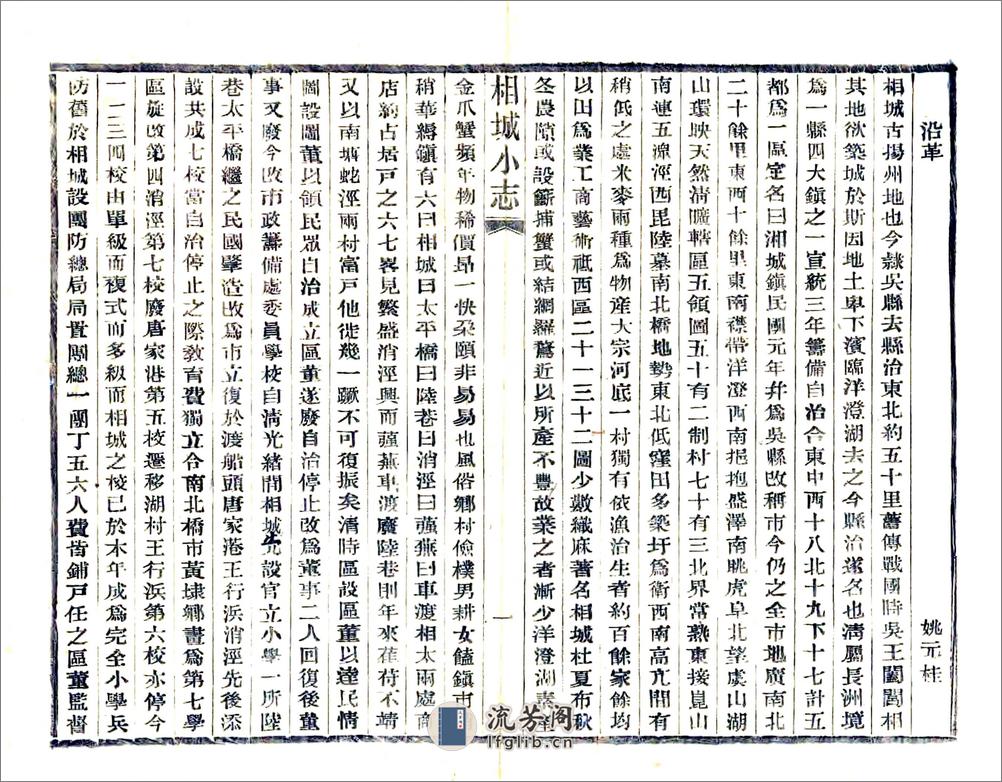 沿革
姚元桂
相城古揚州地也今隸吳縣去縣治東北約五十里舊傳戰國時吳王闔閭相
其地欲築城於斯因地土卑下濱臨洋澄湖去之今縣治遂名也淸屬長洲境
爲一縣四大鎭之一宣統三年籌備自治合東中西十八北十九下十七計五
都爲一區定名曰湘城鎭民國元年幷爲吳縣改稱市今仍之全市地廣南北
二十餘里東西十餘里東南襟帶洋澄西南挹抱盛澤南眺虎阜北望虞山湖
山環映天然淸曠轄區五領圖五十有二制村七十有三北界常熟東接崑山
南連五㵎涇西毘陸墓南北橋地勢東北低窪田多築圩爲衛西南高亢間有
稍低之處米麥兩種爲物產大宗河底一村獨有依漁治生者約百餘家餘均
以田爲業工商藝術祗西區二十一三十二圖少數織麻著名相城杜夏布秋
冬農隙或設籪捕蟹或結網羅鶩近以所產不豐故業之者漸少洋澄湖素產
相城小志
一
金爪蟹頻年物稀價昂一快朶頤非易易也風俗鄉村儉樸男耕女饁鎭市
稍華縟鎭有六曰相城曰太平橋曰陸巷曰消涇曰强蕪曰車渡相太兩處商
店約占居戸之六七畧見繁盛消涇興而强蕪車渡廢陸巷則年來萑苻不靖
又以南塘蛇涇兩村富戸他徙幾一蹶不可復振矣淸時區設區董以達民情
圖設圖董以領民眾自治成立區董遂廢自治停止改爲董事二人回復後董
事又廢今改市政籌備處委員學校自淸光緖間相城先設官立小學一所陸
巷太平橋繼之民國肇造改爲市立復於渡船頭唐家港王行浜消涇先後添
設共成七校當自治停止之際敎育費獨立令南北橋市黃埭鄉畫爲第七學
區旋改第四消涇第七校廢唐家港第五校遷移湖村王行浜第六校亦停今
一二三四校由單級而複式而多級而相城之校已於本年成爲完全小學兵
防舊於相城設團防總局局置團總一團丁五六人費皆鋪戸任之區董監督
流芳閣
lfglib.cn